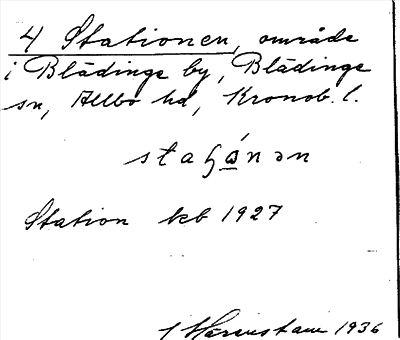 4 Stationen, område
i Blädinge by, Blädinge
sn, Allbo hd, Kronob. l.
staɧɷ́nən
Station kb 1927
1936